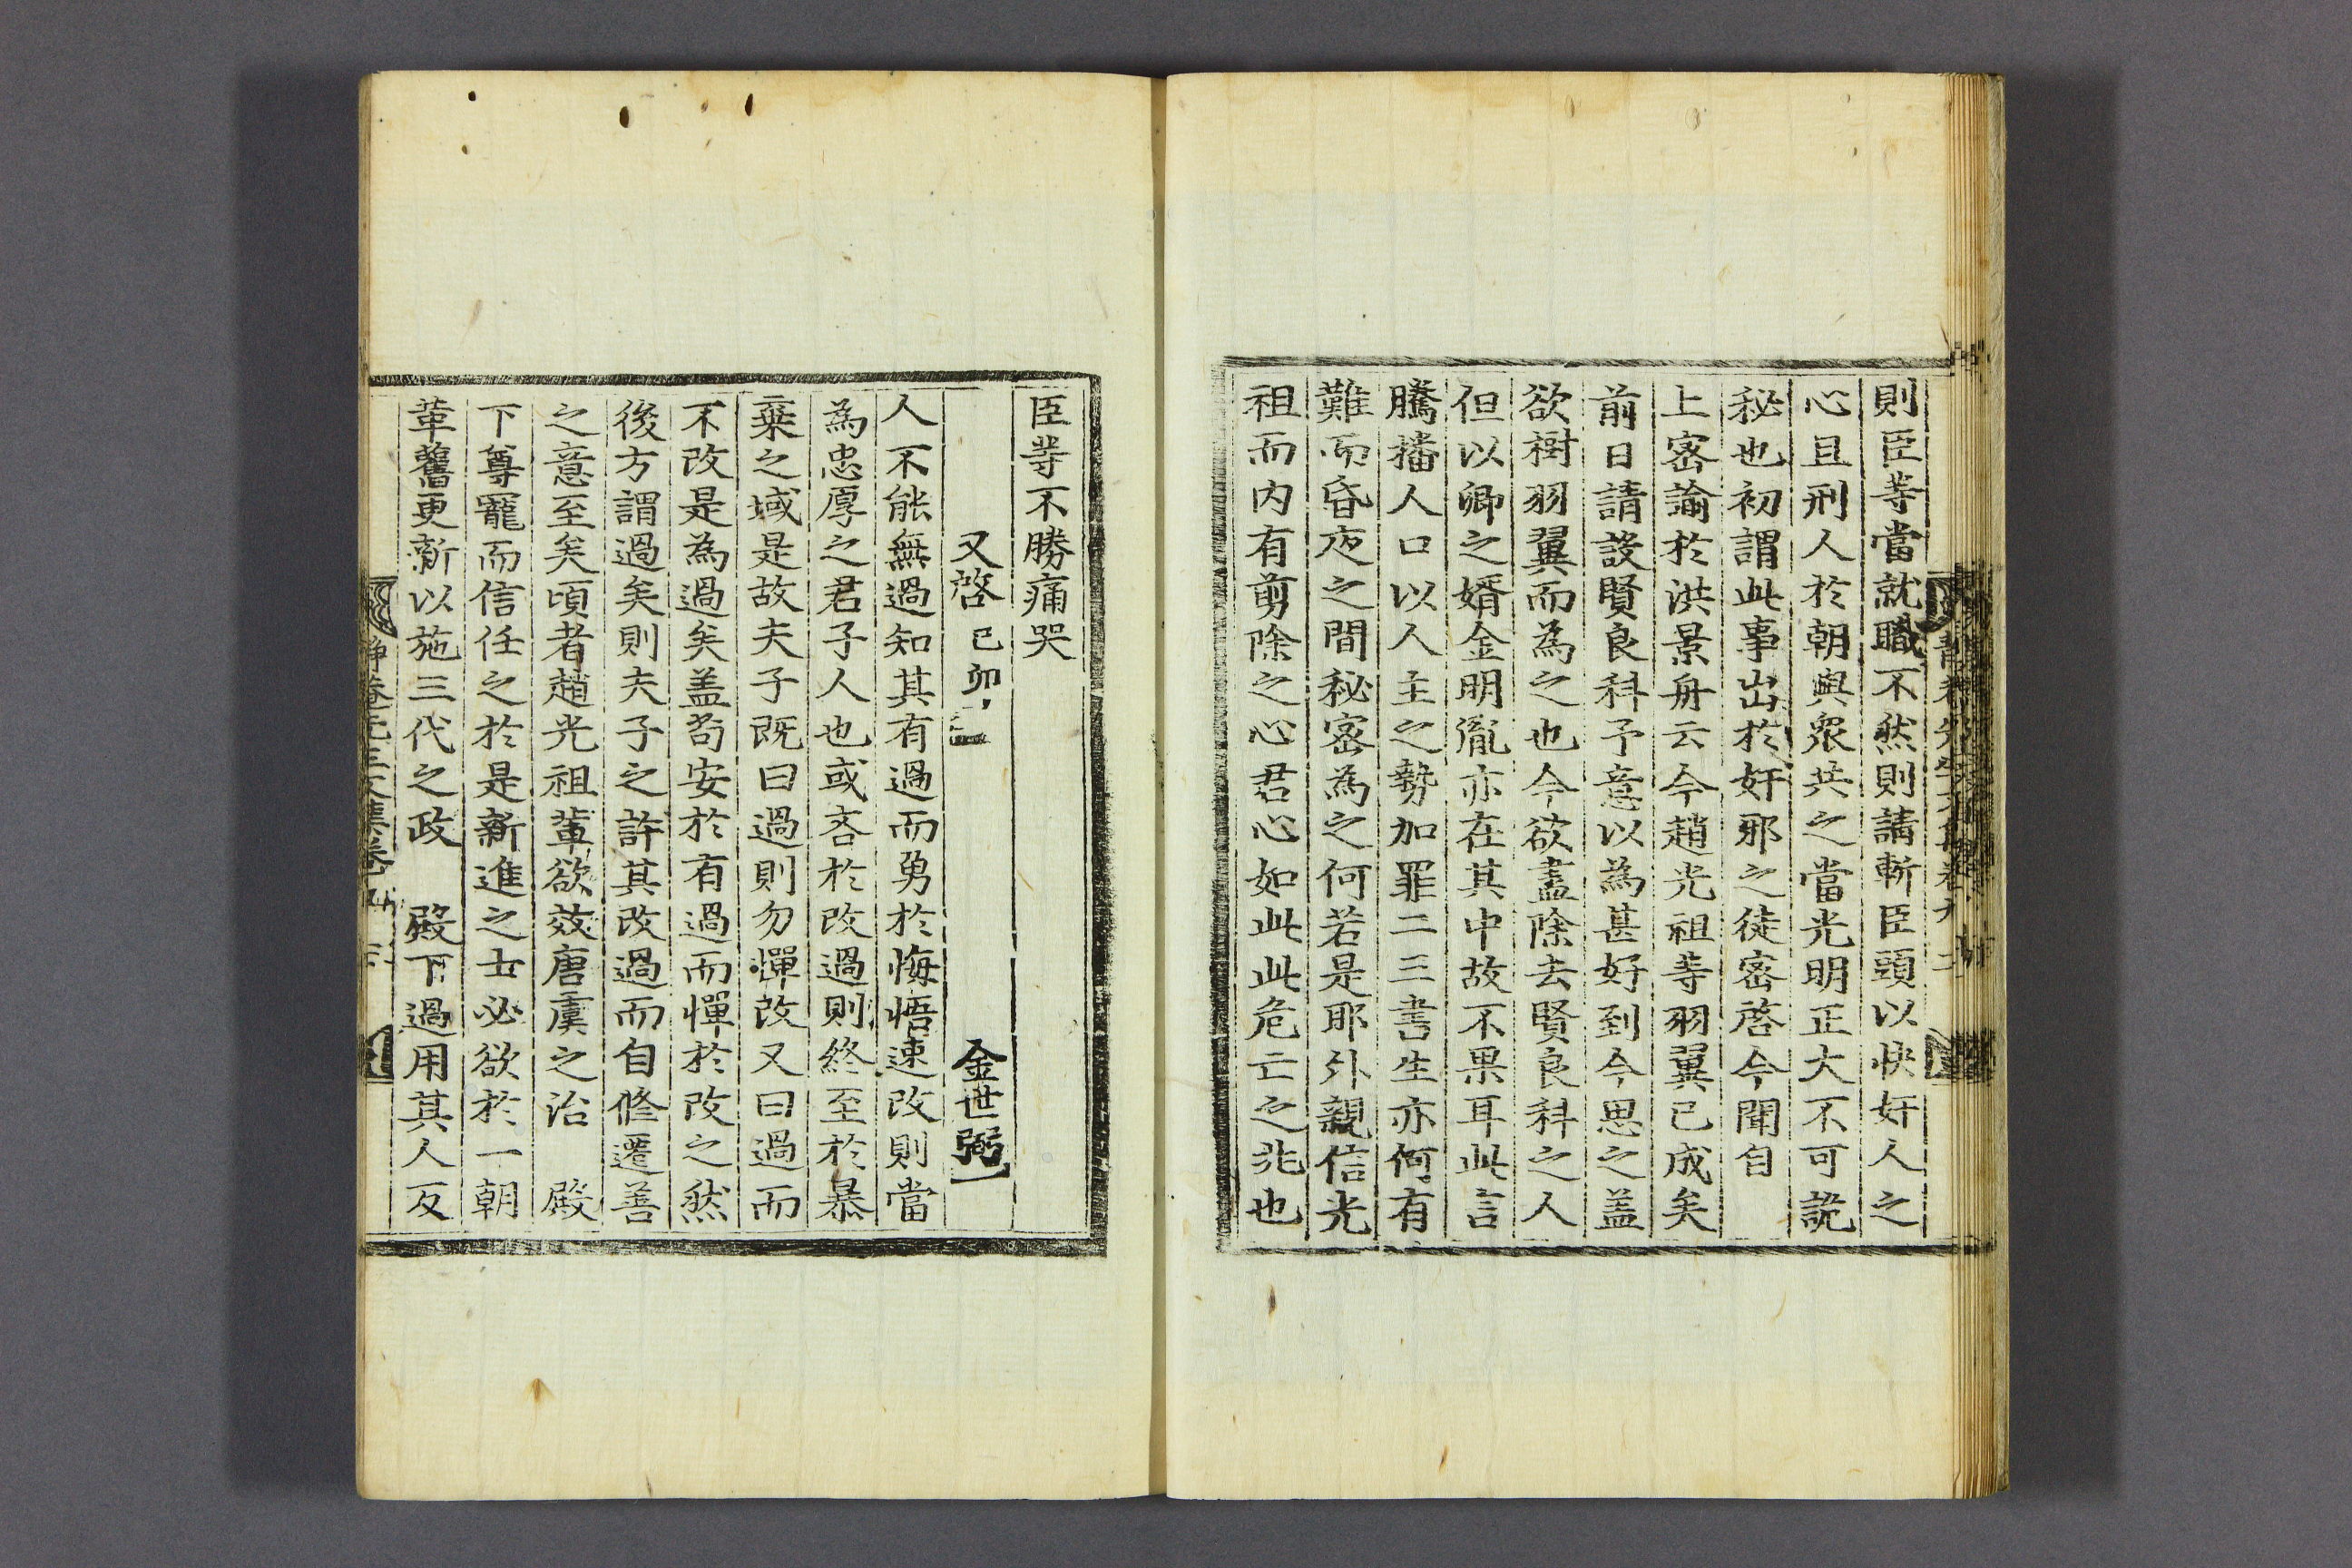 則臣等當就職不然則請斬臣頭以快奸人之
心且刑人於朝與衆共之當光明正大不可詭
秘也初謂此事出於奸邪之徒密啓今聞自
上密諭於洪景舟云今趙光祖等羽翼已成矣
前日請設賢良科予意以為甚好到今思之盖
欲樹羽翼而為之也今欲盡除去賢良科之人
但以卿之婿金明胤亦在其中故不果耳此言
騰播人口以人主之勢加罪二三書生亦何有
難而昏夜之間秘密為之何若是耶外親信光
祖而内有剪除之心君心如此此危亡之兆也
臣等不勝痛哭
又啓 己卯 金世弼
人不能無過知其有過而勇於悔悟速改則當
為忠厚之君子人也或吝於改過則終至於暴
棄之域是故夫子既曰過則勿憚改又曰過而
不改是為過矣盖苟安於有過而憚於改之然
後方謂過矣則夫子之許其改過而自修遷善
之意至矣頃者趙光祖輩欲效唐虞之治 殿
下尊寵而信任之於是新進之士必欲於一朝
革舊更新以施三代之政 殿下過用其人反